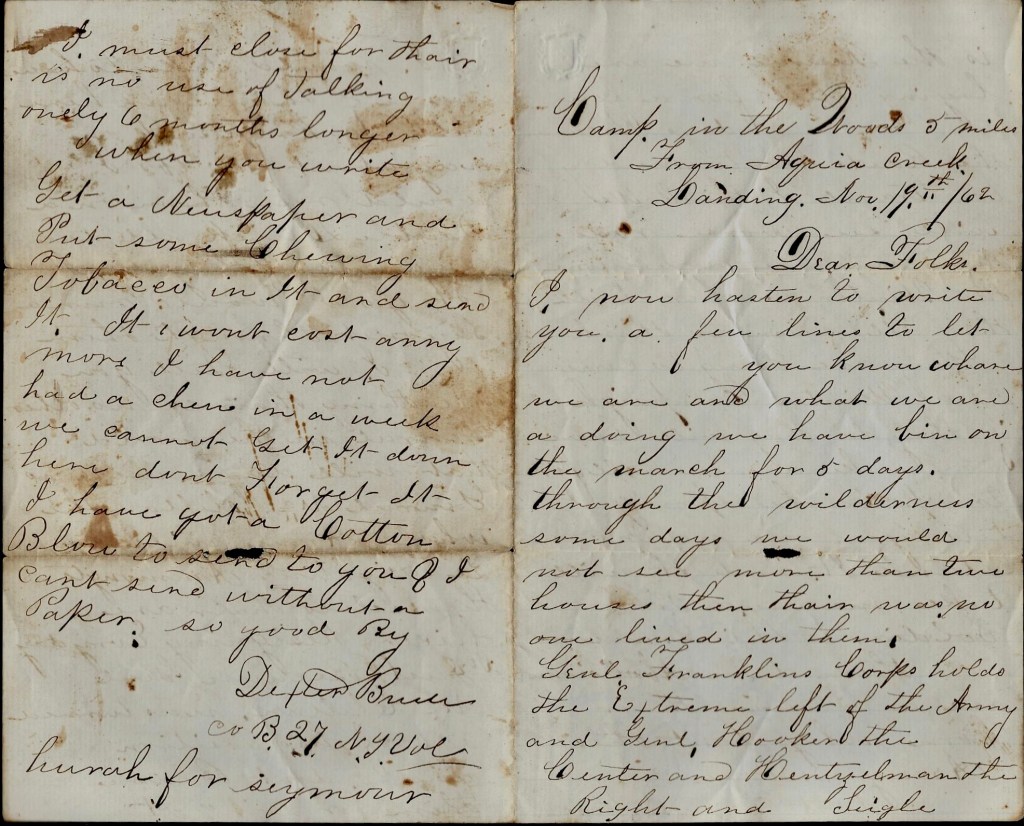 Camp. in the Woods 5 miles
From Aquia Creek
Landing. Nov. 19.th/62
Dear Folks.
I, now hasten to write
you. a few lines to let
you know whare
we are and what we are
a doing we have bin on
the march for 5 days.
through the wilderness
some days we would
not see more than two
houses then thair was no
one lived in them.
Genl. Franklins Corps holds
the Extreme left of the Army
and Genl, Hooker the
Center and Hentzelman the
Right and Seigle
I, must close for thair
is no use of talking
onely 6 months longer
when you write
Get a Newspaper and
Put some Chewing
Tobacco in It and send
It. It wont cost anny
more I have not
had a chew in a week
we cannot Get It down
here dont Forget It
I have got a Cotton
Blow to send to you & I
cant send without a
Paper. so good By
Dexter
co B. 27 N.Y. Vol
hurah for seymour